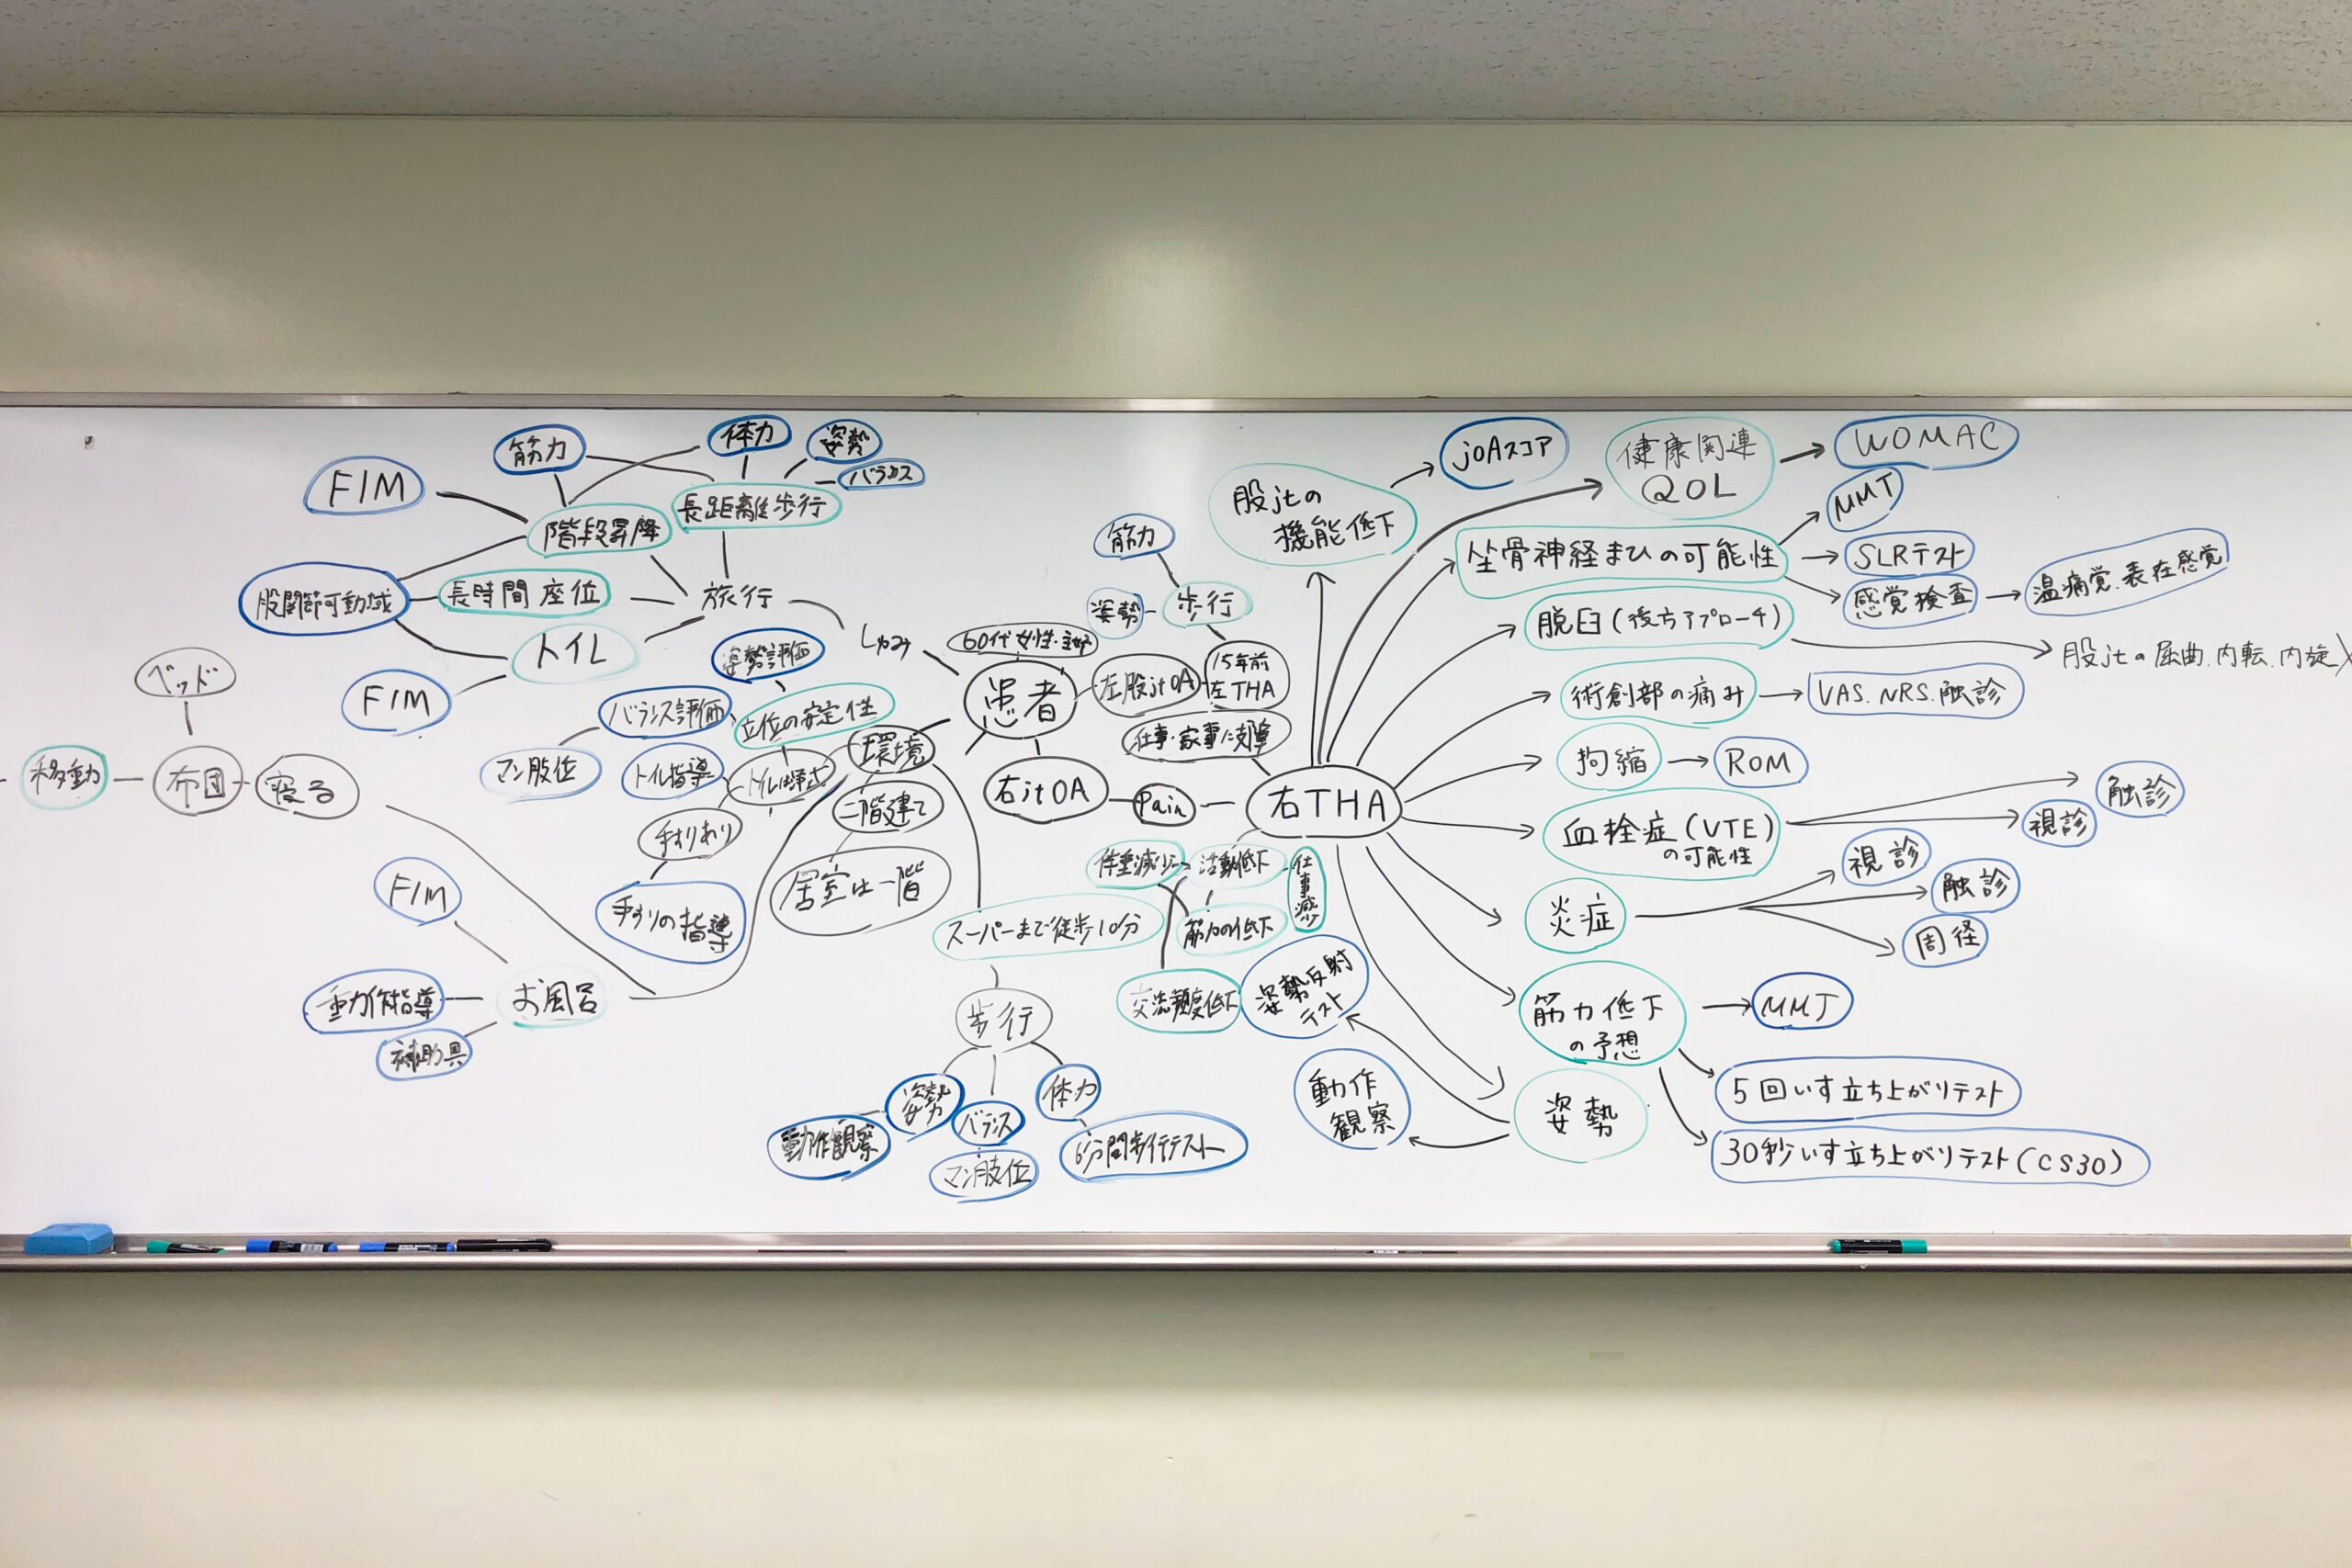 FIM
筋力
体力
姿勢
バランス
階段昇降
長距離歩行
股関節可動域
長時間座位
旅行
トイレ
FIM
しゅみ
ベッド
移動
布団
寝る
姿勢評価
バランス評価
立位の安定性
マン肢位
トイレ指導
手すりあり
手すりの指導
環境
二階建て
居室は一階
FIM
動作指導
お風呂
補助具
スーパーまで徒歩10分
歩行
姿勢
バランス
体力
動作観察
マン肢位
6分間歩行テスト
60代女性・主婦
患者
左股jtOA
15年前
左THA
筋力
姿勢
歩行
仕事・家事に支障
右jtOA
Pain
右THA
体重減少
活動低下
仕事減少
筋力の低下
交流頻度低下
姿勢反射
テスト
動作
観察
股jtの
機能低下
jOAスコア
健康関連
QOL
WOMAC
坐骨神経まひの可能性
MMT
SLRテスト
感覚検査
温痛覚.表在感覚
脱臼(後方アプローチ)
股jtの屈曲.内転.内旋
術創部の痛み
VAS.NRS.触診
拘縮
ROM
血栓症(VTE)
の可能性
触診
視診
炎症
視診
触診
周径
筋力低下
の予想
MMT
5回いす立ち上がりテスト
30秒いす立ち上がりテスト(CS30)
姿勢